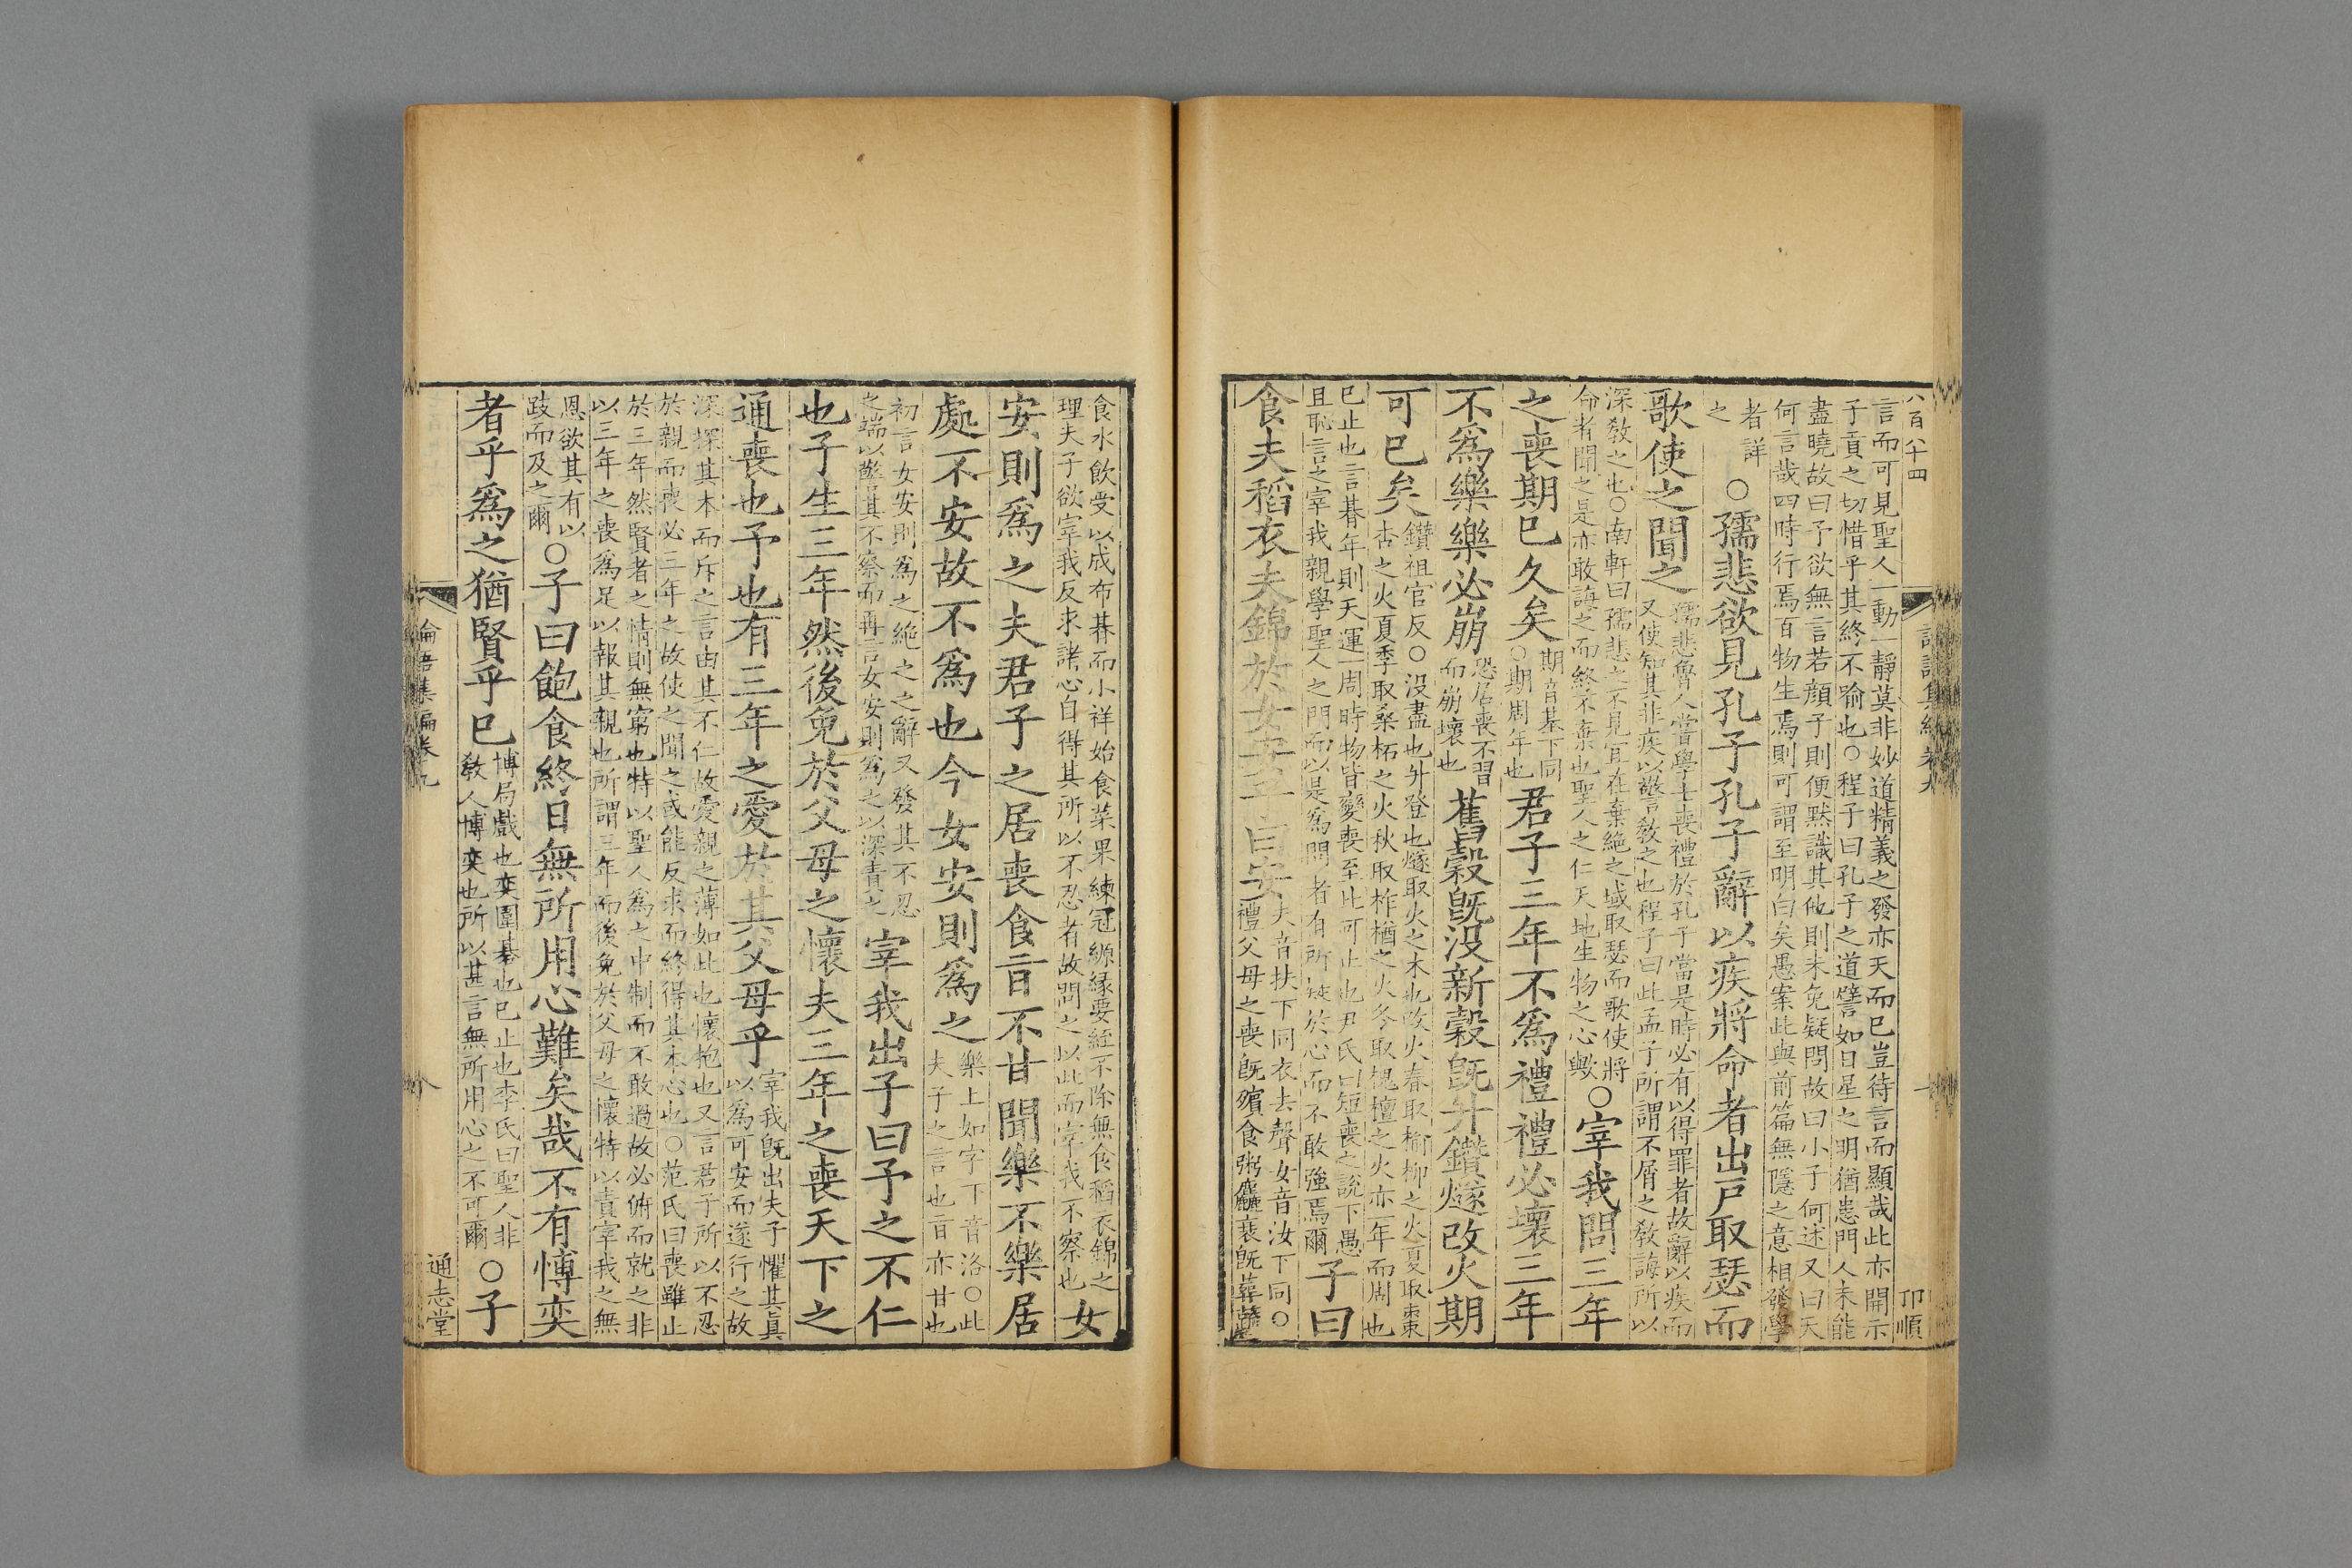 八百八十四
言而可見聖人一動一靜莫非妙道精義之發亦天而已豈待言而顯哉此亦開示
子貢之切惜乎其終不喻也○程子曰孔子之道譬如日星之明猶患門人未能
盡曉故曰予欲無言若顔子則便默識其他則未免疑問故曰小子何述又曰天
何言哉四時行焉百物生焉則可謂至明白矣愚案此與前篇無隱之意相發學
者詳
之
○孺悲欲見孔子孔子辭以疾將命者出戸取瑟而
歌使之聞之
孺悲魯人嘗學士喪禮於孔子當是時必有以得罪者故辭以疾而
又使知其非疾以警敎之也程子曰此孟子所謂不屑之敎誨所以
深敎之也○南軒曰孺悲之不見宜在棄絶之域取瑟而歌使將
命者聞之是亦敢誨之而終不棄也聖人之仁天地生物之心歟
○宰我問三年
之喪期已久矣
期音基下同
○期周年也
君子三年不爲禮禮必壞三年
不爲樂樂必崩
恐居喪不習
而崩壞也
舊穀旣没新穀旣升鑽燧改火期
可已矣
鑽祖官反○没盡也升登也燧取火之木也改火春取榆柳之火夏取棗
杏之火夏季取桑柘之火秋取柞楢之火冬取槐檀之火亦一年而周也
已止也言朞年則天運一周時物皆變喪至此可止也尹氏曰短喪之說下愚
且恥言之宰我親學聖人之門而以是爲問者有所疑於心而不敢強焉爾
子曰
食夫稻衣夫錦於女安乎曰安
夫音扶下同衣去聲女音汝下同○
禮父母之喪旣殯食粥麤衰旣葬蔬
食水飲受以成布朞而小祥始食菜果練冠縓緣要絰不除無食稻衣錦之
理夫子欲宰我反求諸心自得其所以不忍者故問之以此而宰我不察也
女
安則爲之夫君子之居喪食旨不甘聞樂不樂居
處不安故不爲也今女安則爲之
樂上如字下音洛○此
夫子之言也旨亦甘也
初言女安則爲之絶之之辭又發其不忍
之端以警其不察而再言女安則爲之以深責之
宰我出子曰予之不仁
也子生三年然後免於父母之懷夫三年之喪天下之
通喪也予也有三年之愛於其父母乎
宰我旣出夫子懼其眞
以爲可安而遂行之故
深探其本而斥之言由其不仁故愛親之薄如此也懷抱也又言君子所以不忍
於親而喪必三年之故使之聞之或能反求而終得其本心也○范氏曰喪雖止
於三年然賢者之情則無窮也特以聖人爲之中制而不敢過故必俯而就之非
以三年之喪爲足以報其親也所謂三年而後免於父母之懷特以責宰我之無
恩欲其有以
跂而及之爾
○子曰飽食終日無所用心難矣哉不有博奕
者乎爲之猶賢乎已
博局戲也奕圍棊也已止也李氏曰聖人非
敎人博奕也所以甚言無所用心之不可爾
○子
論語集編卷九
通志堂